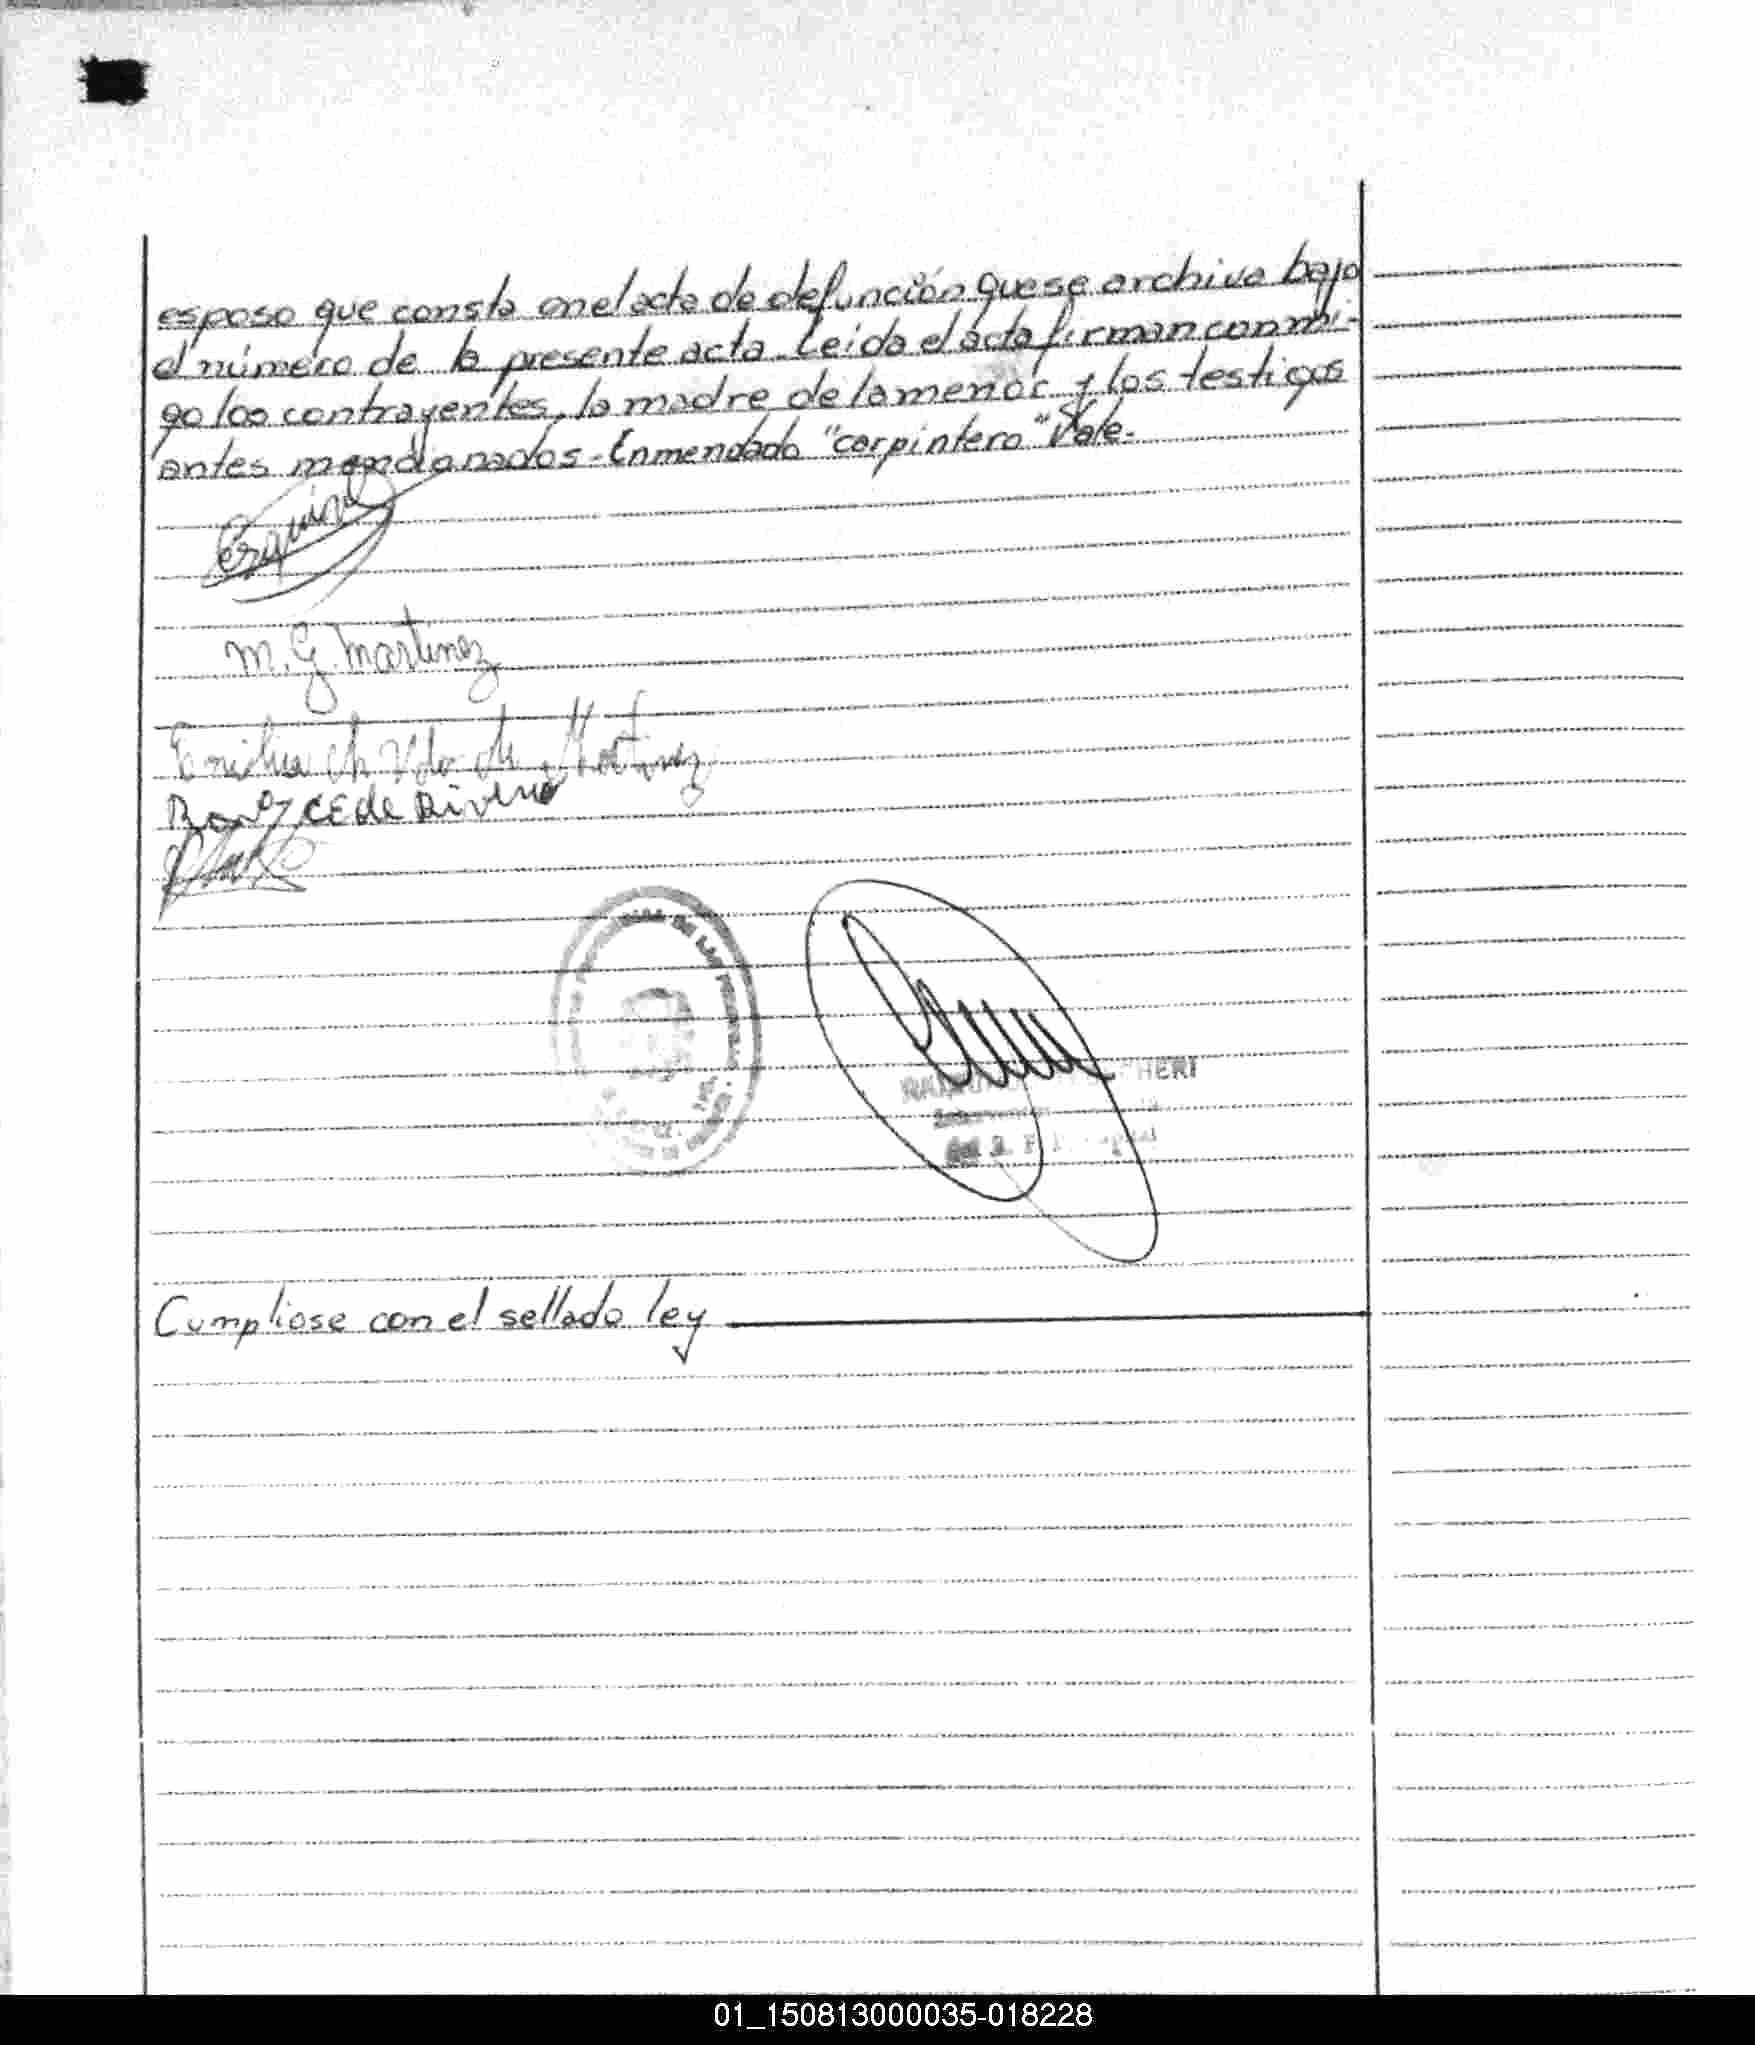 esposo que consta en el acta de defunción que se archiva bajo
el número de la presente acta. Leída el acta firman conmi-
go los contrayentes, la madre de la menor y los testigos
antes mencionados. Enmendado "carpintero" Vale.
M. G. Martinez
Emilia Ch Vda. de Martinez
CE de Rivera
DE LAS
HERI
Cumpliose con el sellado ley
01_150813000035-018228